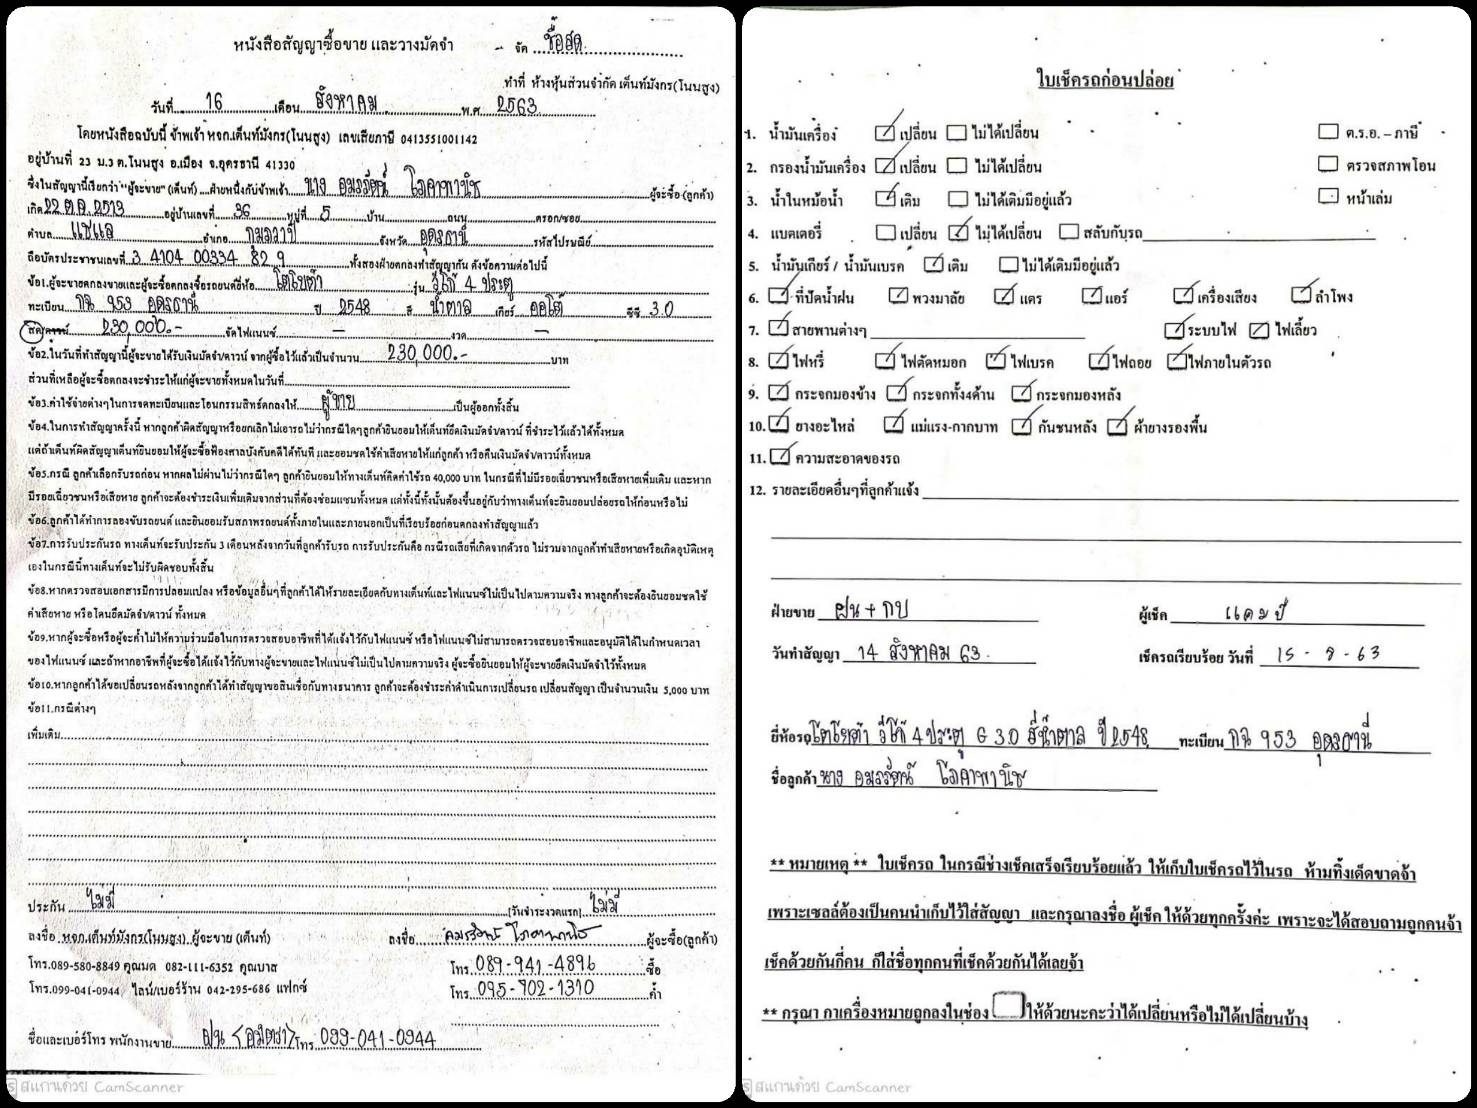 หนังสือสัญญาซื้อขาย และวางมัดจำ - จัด ซื้อสด
ทำที่ ห้างหุ้นส่วนจำกัด เต็นท์มังกร(โนนสูง)
วันที่ 16 เดือน สิงหาคม พ.ศ. 2563
โดยหนังสือฉบับนี้ ข้าพเจ้า หจก.เต็นท์มังกร(โนนสูง) เลขเสียภาษี 0413551001142
อยู่บ้านที่ 23 ม.3 ต.โนนสูง อ.เมือง จ.อุดรธานี 41330
ซึ่งในสัญญานี้เรียกว่า "ผู้จะขาย" (เต็นท์) ฝ่ายหนึ่งกับข้าพเจ้า นาง อมรรัตน์ โภคาพานิช ผู้จะซื้อ (ลูกค้า)
เกิด 22 ต.ค. 2513 อยู่บ้านเลขที่ 36 หมู่ที่ 5 บ้าน ถนน ตรอก/ซอย
ตำบล แชแล อำเภอ กุมภวาปี จังหวัด อุดรธานี รหัสไปรษณีย์
ถือบัตรประชาชนเลขที่ 3 4104 00334 82 9 ทั้งสองฝ่ายตกลงทำสัญญากัน ดังข้อความต่อไปนี้
ข้อ1.ผู้จะขายตกลงขายและผู้จะซื้อตกลงซื้อรถยนต์ยี่ห้อ โตโยต้า รุ่น วีโก้ 4 ประตู
ทะเบียน กฉ 953 อุดรธานี ปี 2548 สี น้ำตาล เกียร์ ออโต้ ซีซี 3.0
สด/ดาวน์ 230,000.- จัดไฟแนนซ์ - งวด -
ข้อ2.ในวันที่ทำสัญญานี้ผู้จะขายได้รับเงินมัดจำ/ดาวน์ จากผู้ซื้อไว้แล้วเป็นจำนวน 230,000.- บาท
ส่วนที่เหลือผู้จะซื้อตกลงจะชำระให้แก่ผู้จะขายทั้งหมดในวันที่
ข้อ3.ค่าใช้จ่ายต่างๆในการจดทะเบียนและโอนกรรมสิทธ์ตกลงให้ ผู้ขาย เป็นผู้ออกทั้งสิ้น
ข้อ4.ในการทำสัญญาครั้งนี้ หากลูกค้าผิดสัญญาหรือยกเลิกไม่เอารถไม่ว่ากรณีใดๆลูกค้ายินยอมให้เต็นท์ยึดเงินมัดจำ/ดาวน์ ที่ชำระไว้แล้วได้ทั้งหมด
แต่ถ้าเต็นท์ผิดสัญญาเต็นท์ยินยอมให้ผู้จะซื้อฟ้องศาลบังคับคดีได้ทันที และยอมชดใช้ค่าเสียหายให้แก่ลูกค้า หรือคืนเงินมัดจำ/ดาวน์ทั้งหมด
ข้อ5.กรณี ลูกค้าเลือกรับรถก่อน หากผลไม่ผ่านไม่ว่ากรณีใดๆ ลูกค้ายินยอมให้ทางเต็นท์คิดค่าใช้รถ 40,000 บาท ในกรณีที่ไม่มีรอยเฉี่ยวชนหรือเสียหายเพิ่มเติม และหาก
มีรอยเฉี่ยวชนหรือเสียหาย ลูกค้าจะต้องชำระเงินเพิ่มเติมจากส่วนที่ต้องซ่อมแซมทั้งหมด แต่ทั้งนี้ทั้งนั้นต้องขึ้นอยู่กับว่าทางเต็นท์จะยินยอมปล่อยรถให้ก่อนหรือไม่
ข้อ6.ลูกค้าได้ทำการลองขับรถยนต์ และยินยอมรับสภาพรถยนต์ทั้งภายในและภายนอกเป็นที่เรียบร้อยก่อนตกลงทำสัญญาแล้ว
ข้อ7.การรับประกันรถ ทางเต็นท์จะรับประกัน 3 เดือนหลังจากวันที่ลูกค้ารับรถ การรับประกันคือ กรณีรถเสียที่เกิดจากตัวรถ ไม่รวมจากลูกค้าทำเสียหายหรือเกิดอุบัติเหตุ
เองในกรณีนี้ทางเต็นท์จะไม่รับผิดชอบทั้งสิ้น
ข้อ8.หากตรวจสอบเอกสารมีการปลอมแปลง หรือข้อมูลอื่นๆที่ลูกค้าได้ให้รายละเอียดกับทางเต็นท์และไฟแนนซ์ไม่เป็นไปตามความจริง ทางลูกค้าจะต้องยินยอมชดใช้
ค่าเสียหาย หรือโดนยึดมัดจำ/ดาวน์ ทั้งหมด
ข้อ9.หากผู้จะซื้อหรือผู้จะค้ำไม่ให้ความร่วมมือในการตรวจสอบอาชีพที่ได้แจ้งไว้กับไฟแนนซ์ หรือไฟแนนซ์ไม่สามารถตรวจสอบอาชีพและอนุมัติได้ในกำหนดเวลา
ของไฟแนนซ์ และถ้าหากอาชีพที่ผู้จะซื้อได้แจ้งไว้กับทางผู้จะขายและไฟแนนซ์ไม่เป็นไปตามความจริง ผู้จะซื้อยินยอมให้ผู้จะขายยึดเงินมัดจำไว้ทั้งหมด
ข้อ10.หากลูกค้าได้ขอเปลี่ยนรถหลังจากลูกค้าได้ทำสัญญาขอสินเชื่อกับทางธนาคาร ลูกค้าจะต้องชำระค่าดำเนินการเปลี่ยนรถ เปลี่ยนสัญญา เป็นจำนวนเงิน 5,000 บาท
ข้อ11.กรณีต่างๆ
เพิ่มเติม
ประกัน ไม่มี (วันชำระงวดแรก) ไม่มี
ลงชื่อ หจก.เต็นท์มังกร(โนนสูง) ผู้จะขาย (เต็นท์) ลงชื่อ อมรรัตน์ โภคาพานิช ผู้จะซื้อ(ลูกค้า)
โทร.089-580-8849 คุณมด 082-111-6352 คุณบาส โทร. 089-941-4896 ซื้อ
โทร.099-041-0944 ไลน์/เบอร์ร้าน 042-295-686 แฟกซ์ โทร. 095-902-1310 ค้ำ
ชื่อและเบอร์โทร พนักงานขาย ฝน (อมิตรา) โทร 099-041-0944
สแกนด้วย CamScanner
ใบเช็ครถก่อนปล่อย
1. น้ำมันเครื่อง เปลี่ยน ไม่ได้เปลี่ยน ต.ร.อ. – ภาษี
2. กรองน้ำมันเครื่อง เปลี่ยน ไม่ได้เปลี่ยน ตรวจสภาพโอน
3. น้ำในหม้อน้ำ เติม ไม่ได้เติมมีอยู่แล้ว หน้าเล่ม
4. แบตเตอรี่ เปลี่ยน ไม่ได้เปลี่ยน สลับกับรถ
5. น้ำมันเกียร์ / น้ำมันเบรค เติม ไม่ได้เติมมีอยู่แล้ว
6. ที่ปัดน้ำฝน พวงมาลัย แตร แอร์ เครื่องเสียง ลำโพง
7. สายพานต่างๆ ระบบไฟ ไฟเลี้ยว
8. ไฟหรี่ ไฟตัดหมอก ไฟเบรค ไฟถอย ไฟภายในตัวรถ
9. กระจกมองข้าง กระจกทั้ง4ด้าน กระจกมองหลัง
10. ยางอะไหล่ แม่แรง-กากบาท กันชนหลัง ผ้ายางรองพื้น
11. ความสะอาดของรถ
12. รายละเอียดอื่นๆที่ลูกค้าแจ้ง
ฝ่ายขาย ฝน + กบ ผู้เช็ค แคมป์
วันทำสัญญา 14 สิงหาคม 63. เช็ครถเรียบร้อย วันที่ 15 - 8 - 63
ยี่ห้อรถ โตโยต้า วีโก้ 4 ประตู G 3.0 สีน้ำตาล ปี 2548 ทะเบียน กฉ 953 อุดรธานี
ชื่อลูกค้า นาง อมรรัตน์ โภคาพานิช
** หมายเหตุ ** ใบเช็ครถ ในกรณีช่างเช็คเสร็จเรียบร้อยแล้ว ให้เก็บใบเช็ครถไว้ในรถ ห้ามทิ้งเด็ดขาดจ้า
เพราะเซลล์ต้องเป็นคนนำเก็บไว้ใส่สัญญา และกรุณาลงชื่อ ผู้เช็ค ให้ด้วยทุกครั้งค่ะ เพราะจะได้สอบถามถูกคนจ้า
เช็คด้วยกันกี่คน ก็ใส่ชื่อทุกคนที่เช็คด้วยกันได้เลยจ้า
** กรุณา กาเครื่องหมายถูกลงในช่อง ให้ด้วยนะคะว่าได้เปลี่ยนหรือไม่ได้เปลี่ยนบ้าง
สแกนด้วย CamScanner